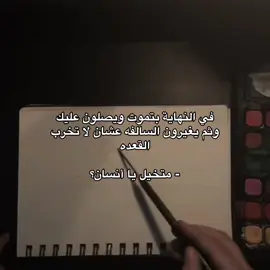 في النهاية بتموت ويصلون عليك
وثم يغيرون السالفه عشان لا تخرب
القعده
- متخيل يا انسان؟